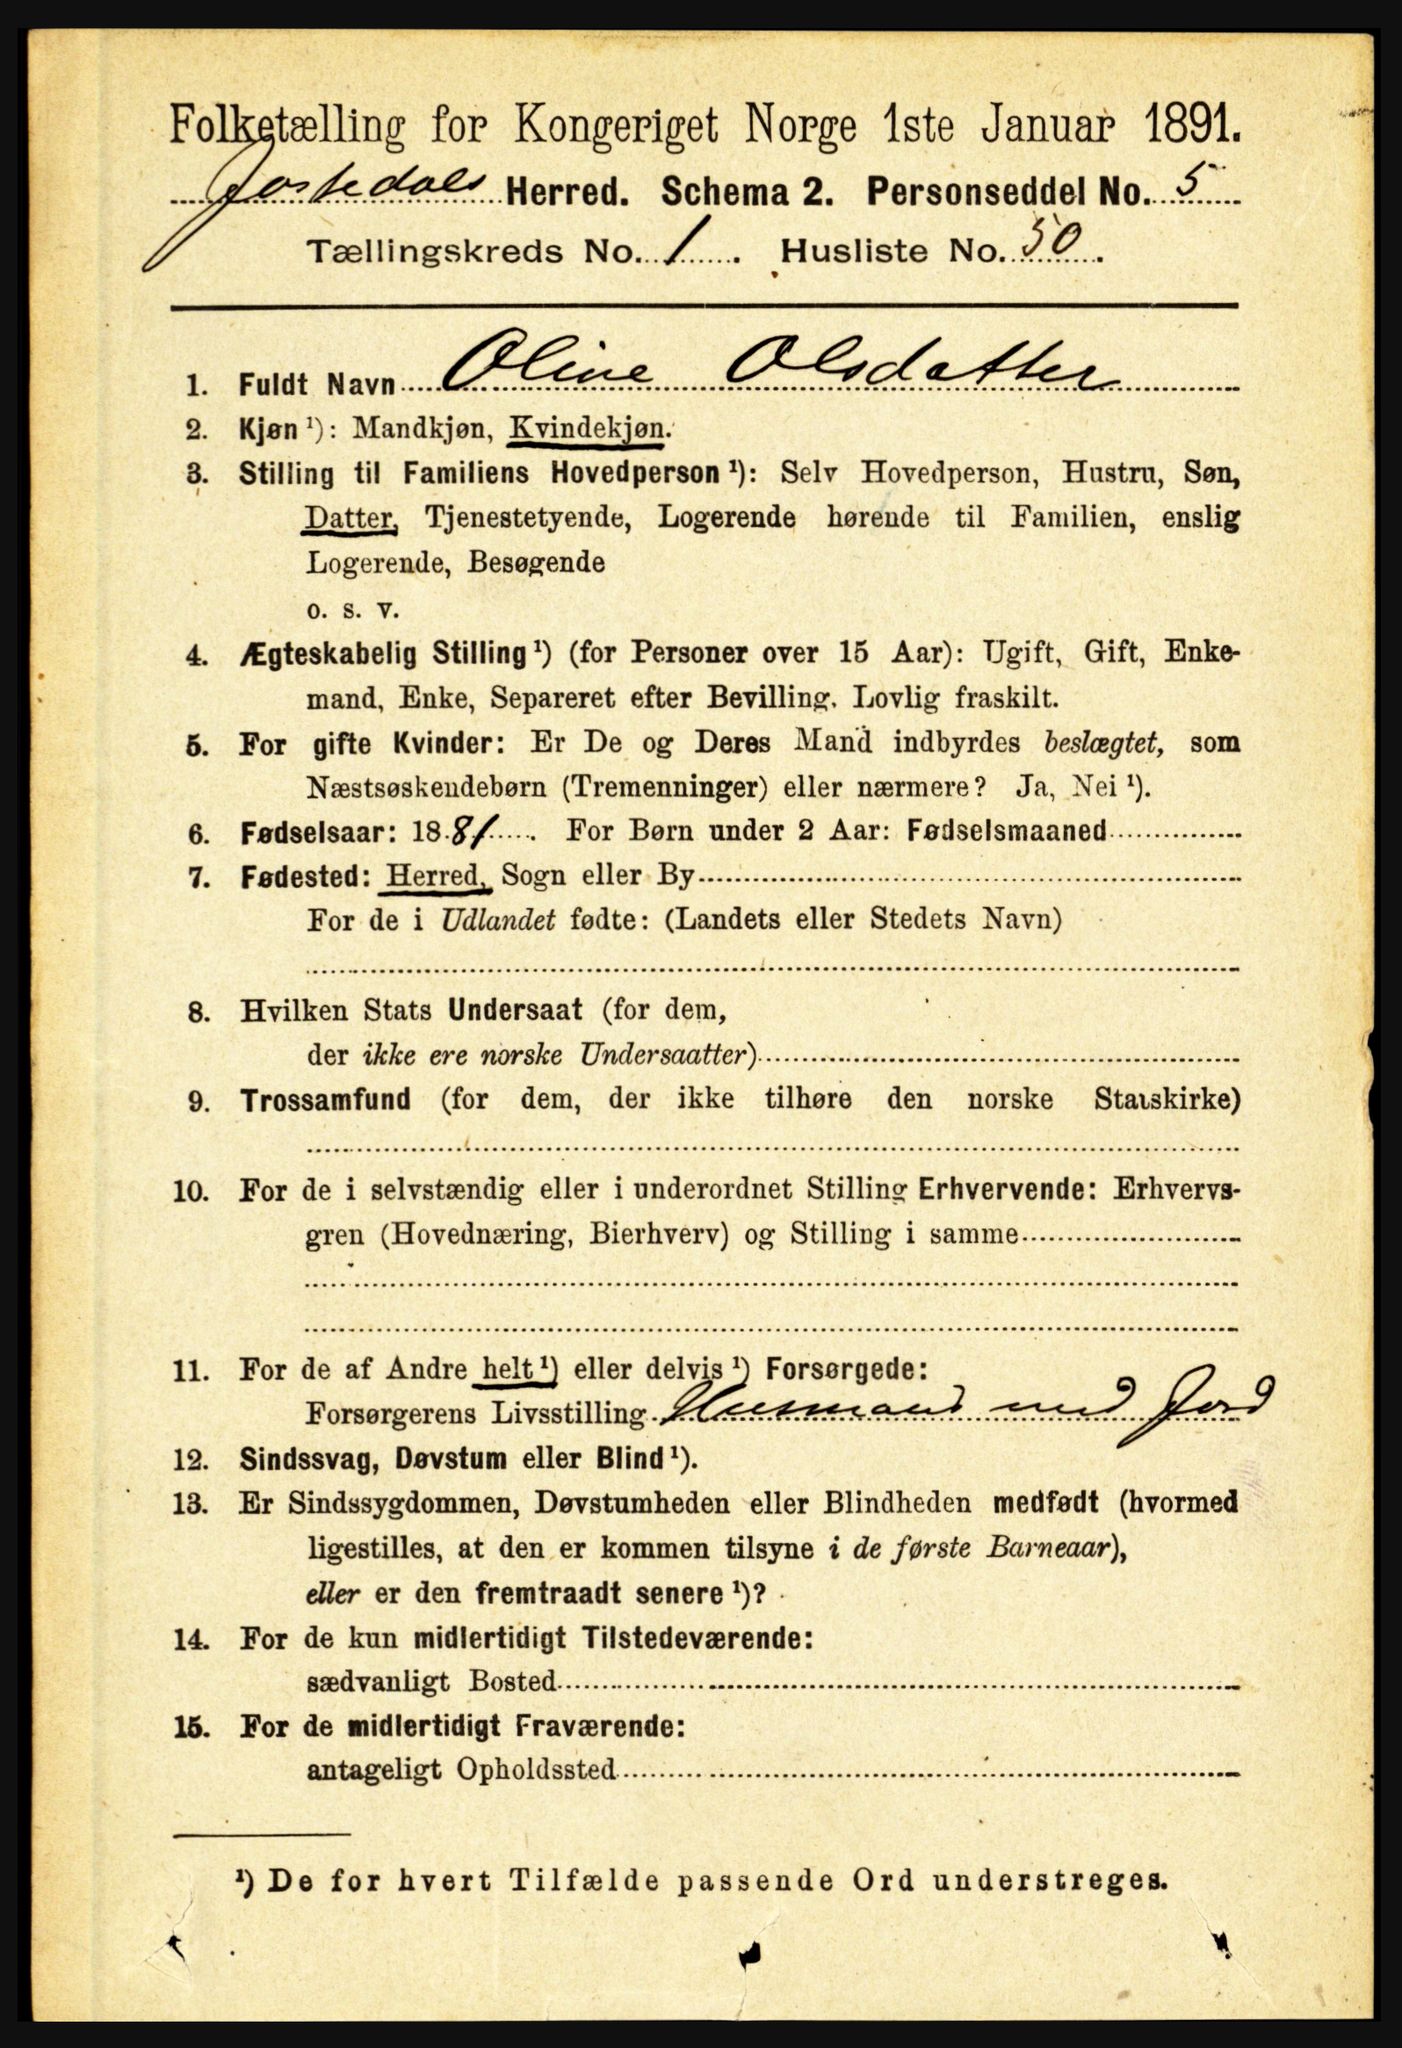 Folketælling for Kongeriget Norge 1ste Januar 1891.
Jostedals Herred. Schema 2. Personseddel No. 5
Tællingskreds No. 1. Husliste No. 50.
1. Fuldt Navn Oline Olsdatter
2. Kjøn ¹): Mandkjøn, Kvindekjøn.
3. Stilling til Familiens Hovedperson ¹): Selv Hovedperson, Hustru, Søn,
Datter, Tjenestetyende, Logerende hørende til Familien, enslig
Logerende, Besøgende
o. s. v.
4. Ægteskabelig Stilling ¹) (for Personer over 15 Aar): Ugift, Gift, Enke-
mand, Enke, Separeret efter Bevilling. Lovlig fraskilt.
5. For gifte Kvinder: Er De og Deres Mand indbyrdes beslægtet, som
Næstsøskendebørn (Tremenninger) eller nærmere? Ja, Nei ¹).
6. Fødselsaar: 1881. For Børn under 2 Aar: Fødselsmaaned
7. Fødested: Herred, Sogn eller By
For de i Udlandet fødte: (Landets eller Stedets Navn)
8. Hvilken Stats Undersaat (for dem,
der ikke ere norske Undersaatter)
9. Trossamfund (for dem, der ikke tilhøre den norske Statskirke)
10. For de i selvstændig eller i underordnet Stilling Erhvervende: Erhvervs-
gren (Hovednæring, Bierhverv) og Stilling i samme
11. For de af Andre helt ¹) eller delvis ¹) Forsørgede:
Forsørgerens Livsstilling Husmand med Jord
12. Sindssvag, Døvstum eller Blind ¹).
13. Er Sindssygdommen, Døvstumheden eller Blindheden medfødt (hvormed
ligestilles, at den er kommen tilsyne i de første Barneaar),
eller er den fremtraadt senere ¹)?
14. For de kun midlertidigt Tilstedeværende:
sædvanligt Bosted
15. For de midlertidigt Fraværende:
antageligt Opholdssted
¹) De for hvert Tilfælde passende Ord understreges.